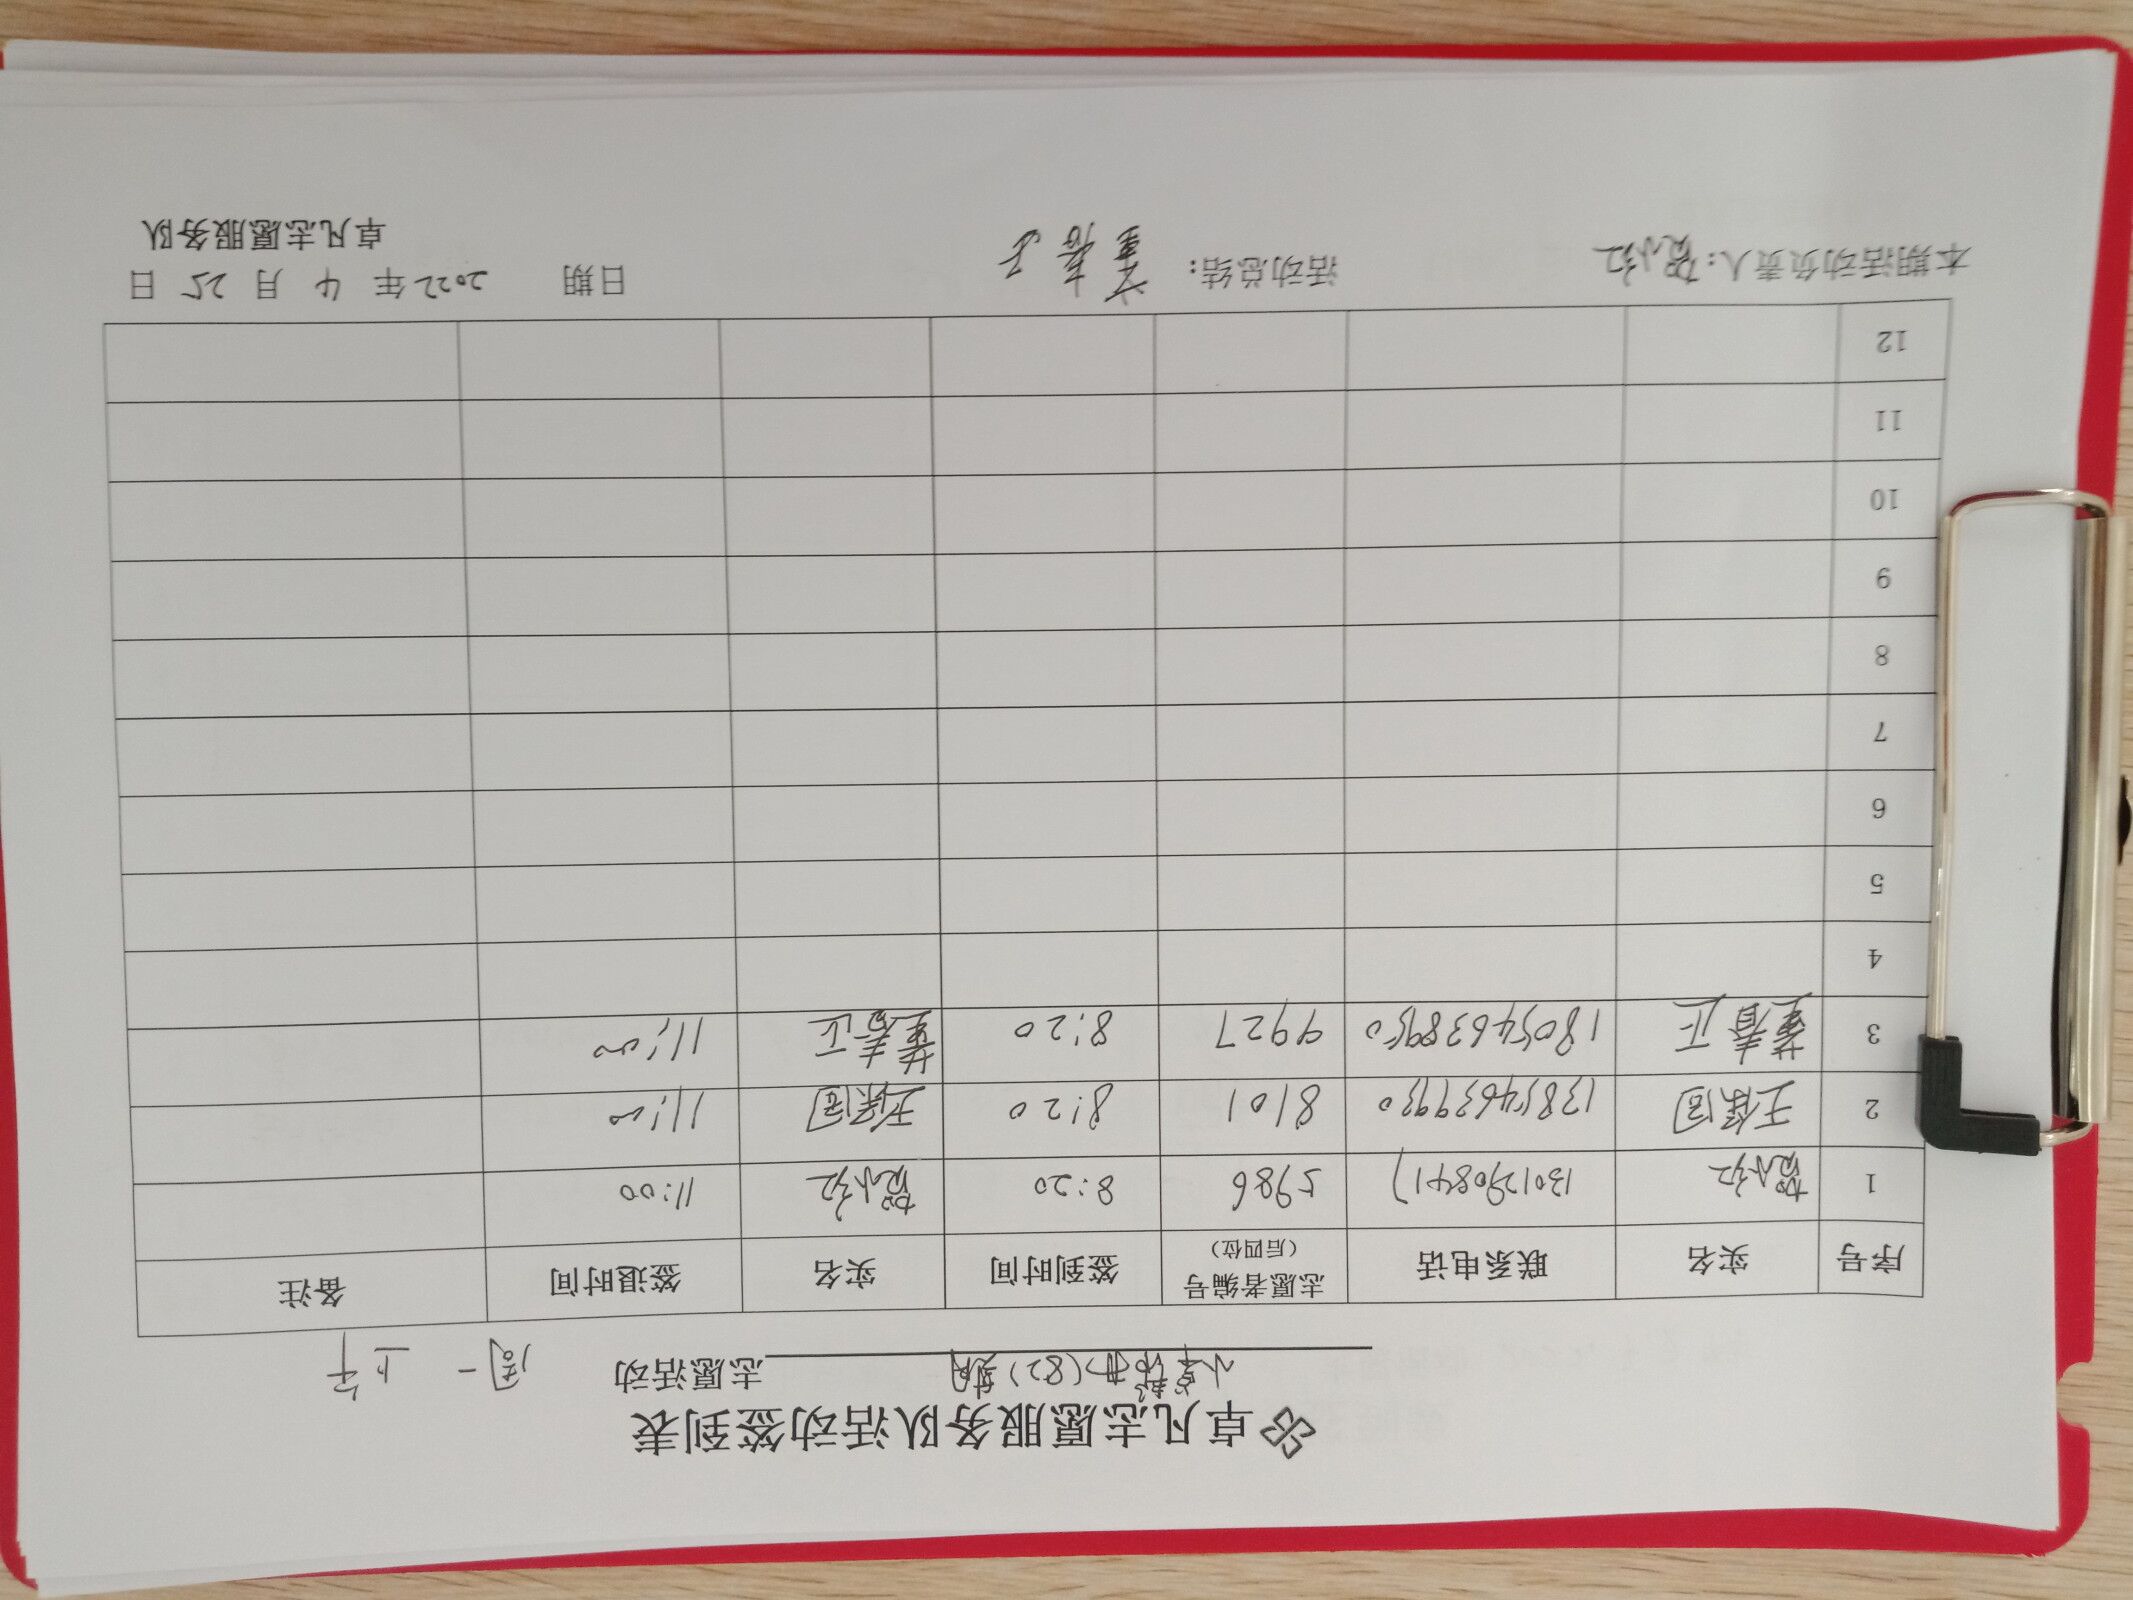 卓凡志愿服务队活动签到表
(82)期 志愿活动 周一 上午
序号 实名 联系电话 志愿者编号（后四位） 签到时间 实名 签退时间 备注
1 贺小红 13012908417 5986 8:20 贺小红 11:00
2 王保国 13854639930 8101 8:20 王保国 11:00
3 董春正 18054638950 9927 8:20 董春正 11:00
4
5
6
7
8
9
10
11
12
本期活动负责人：贺小红 活动总结：董春正 日期 2022年 4 月 25 日
卓凡志愿服务队